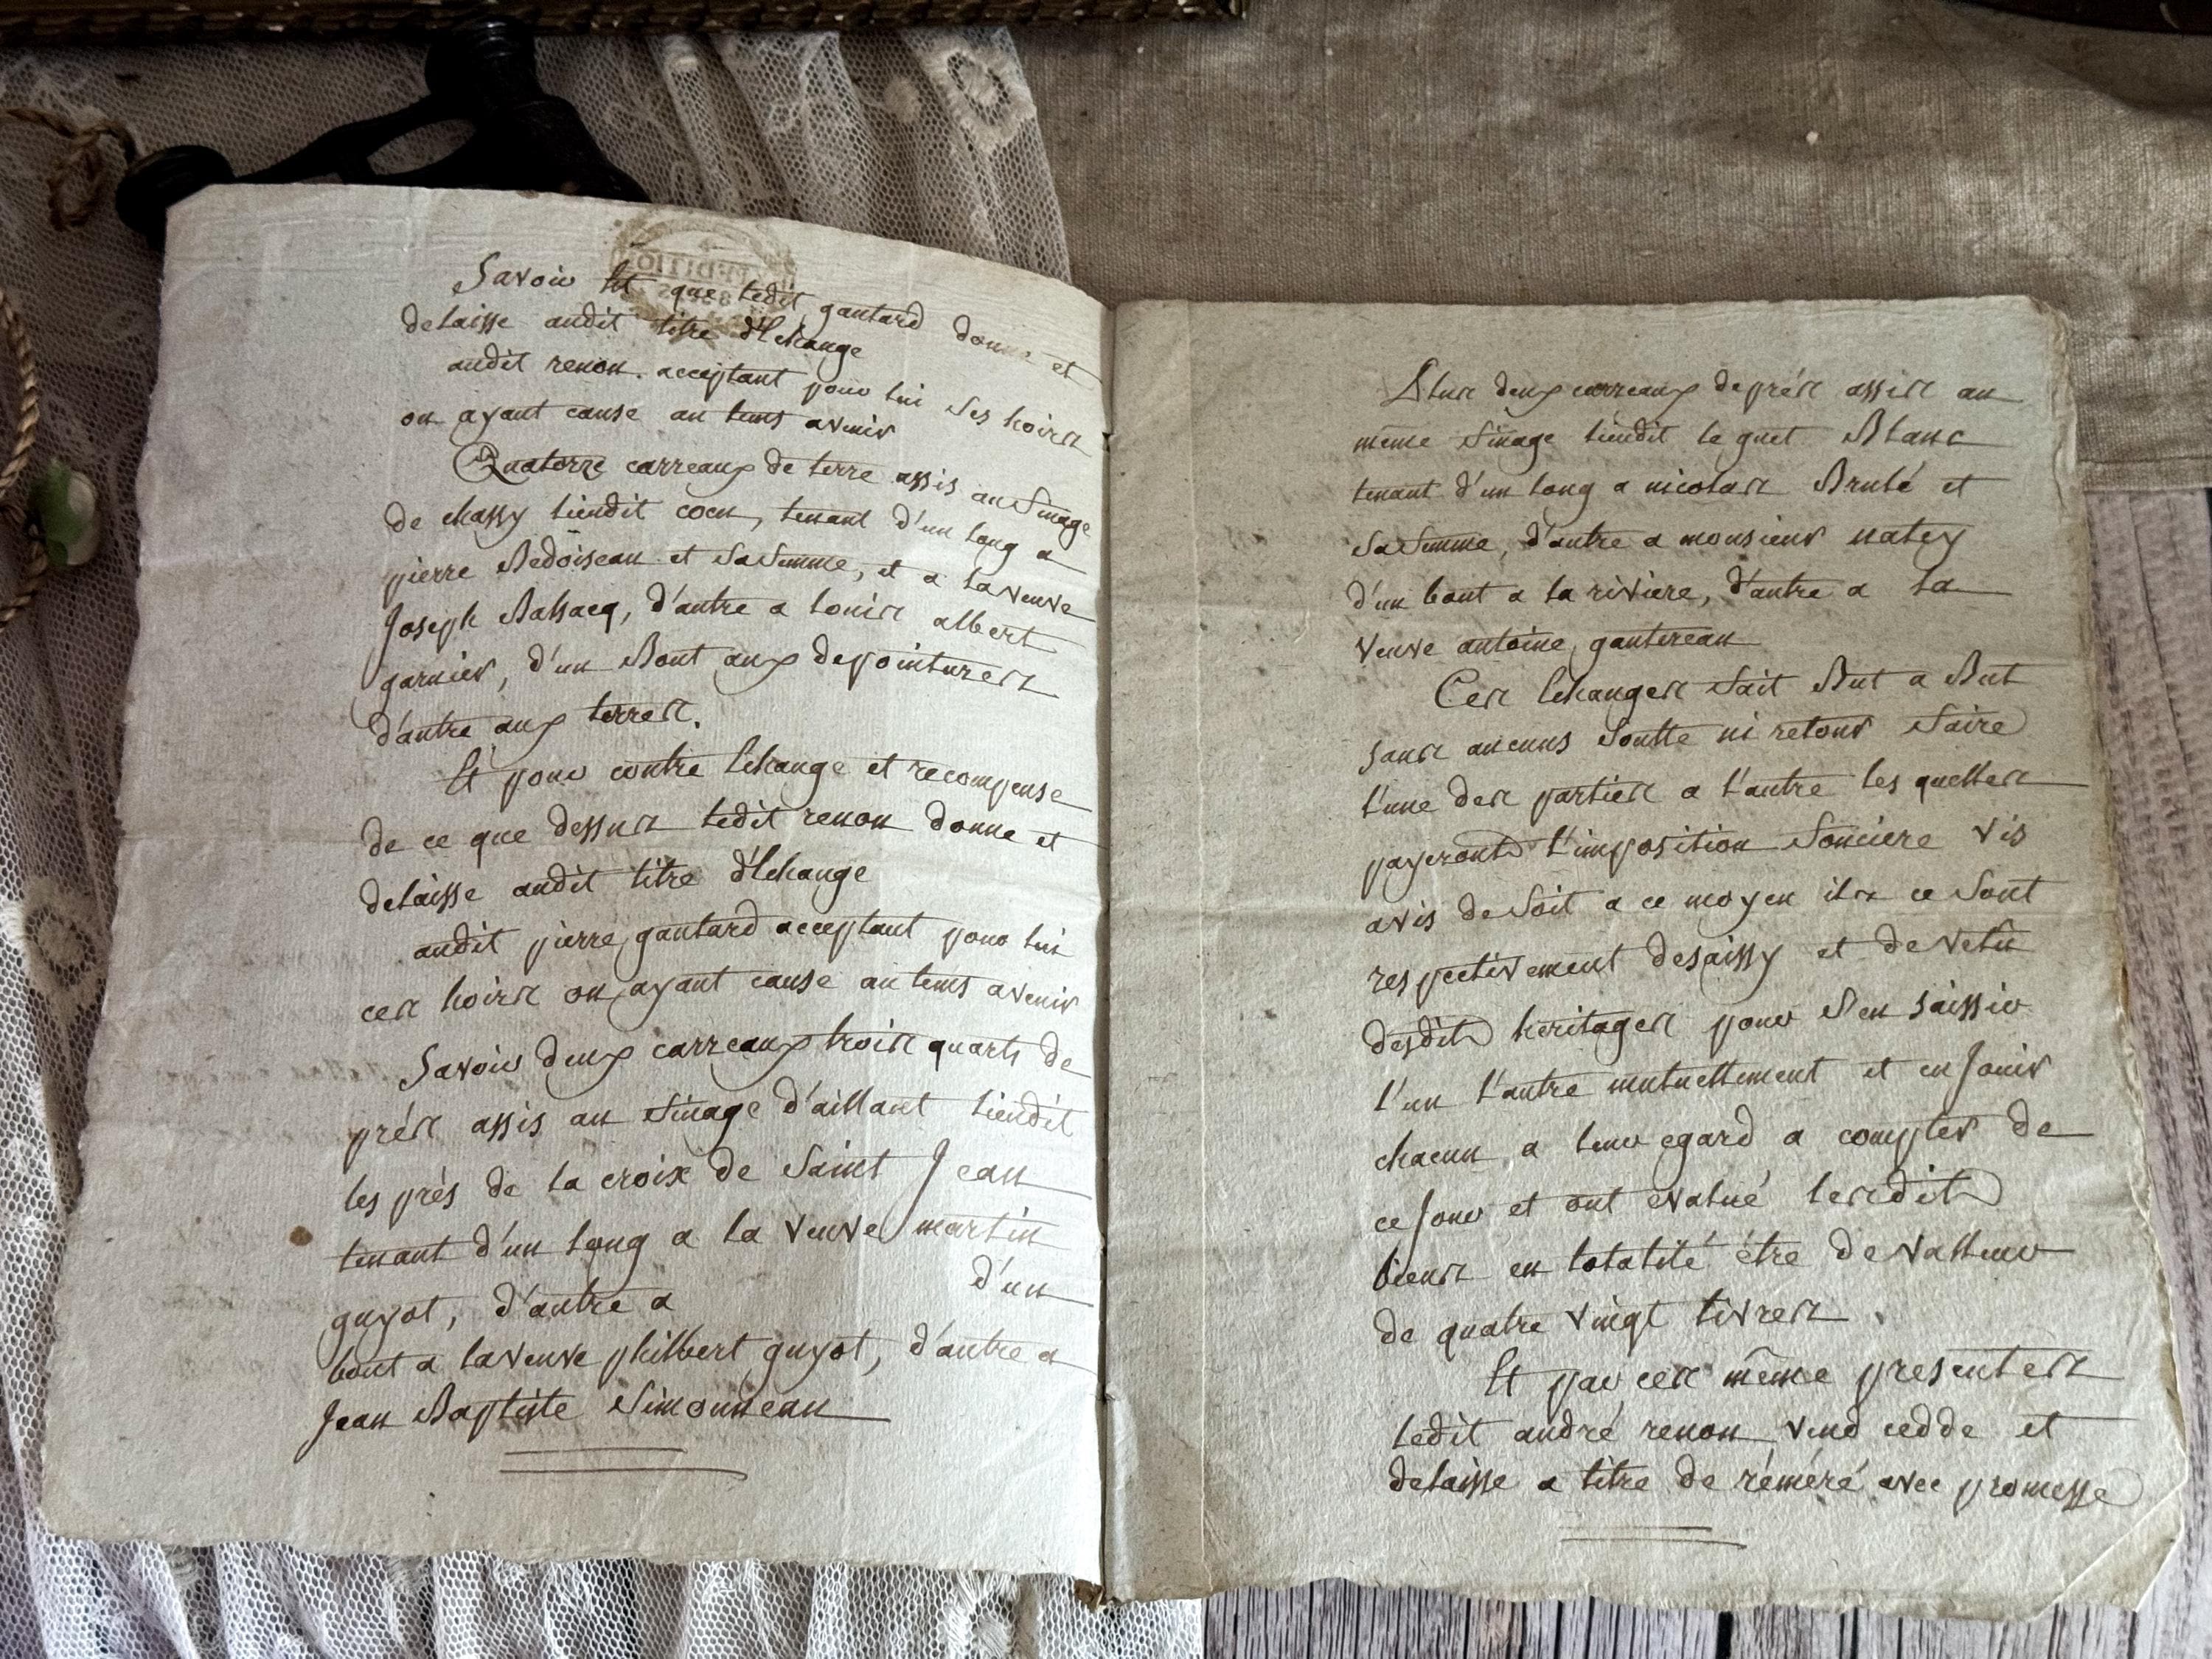 Savoir Est que ledit gautard donne et
delaisse audit titre d'Echange
audit renon. acceptant pour lui ses hoirs
ou ayant cause au tems avenir
Quatorze carreaux de terre assis au finage
de chassy lieudit cocu, tenant d'un long a
pierre Bedoiseau et sa femme, et a la veuve
Joseph Balsacq, d'autre a louis albert
garnier, d'un Bout aux depointures
d'autre aux terres.
Et pour contre Echange et recompense
de ce que dessus ledit renon donne et
delaisse audit titre d'Echange
audit pierre gautard acceptant pour lui
ces hoirs ou ayant cause au tems avenir
Savoir deux carreaux trois quarts de
prés assis au finage d'aillant lieudit
les prés de la croix de Saint Jean
tenant d'un long a la veuve martin
guyot, d'autre a d'un
bout a la veuve philbert guyot, d'autre a
Jean Baptiste Simonneau
Plus deux carreaux de prés assis au
même finage lieudit le guet Blanc
tenant d'un long a nicolas Brulé et
sa femme, d'autre a monsieur natey
d'un bout a la riviere, d'autre a la
veuve antoine gautereau
Ces Echanges fait But a But
sans aucuns Soulte ni retour faire
l'une des parties a l'autre les quelles
payeront l'imposition fonciere vis
avis de soit a ce moyen ils ce sont
respectivement desaissy et devetu
desdits heritages pour s'en saissir
l'un l'autre mutuellement et en Jouir
chacun a leur egard a compter de
ce Jour et ont evalué lesdits
biens en totalité être de valleur
de quatre vingt livres
Et par ces même presentes
ledit andré renon vend cedde et
delaisse a titre de réméré avec promesse